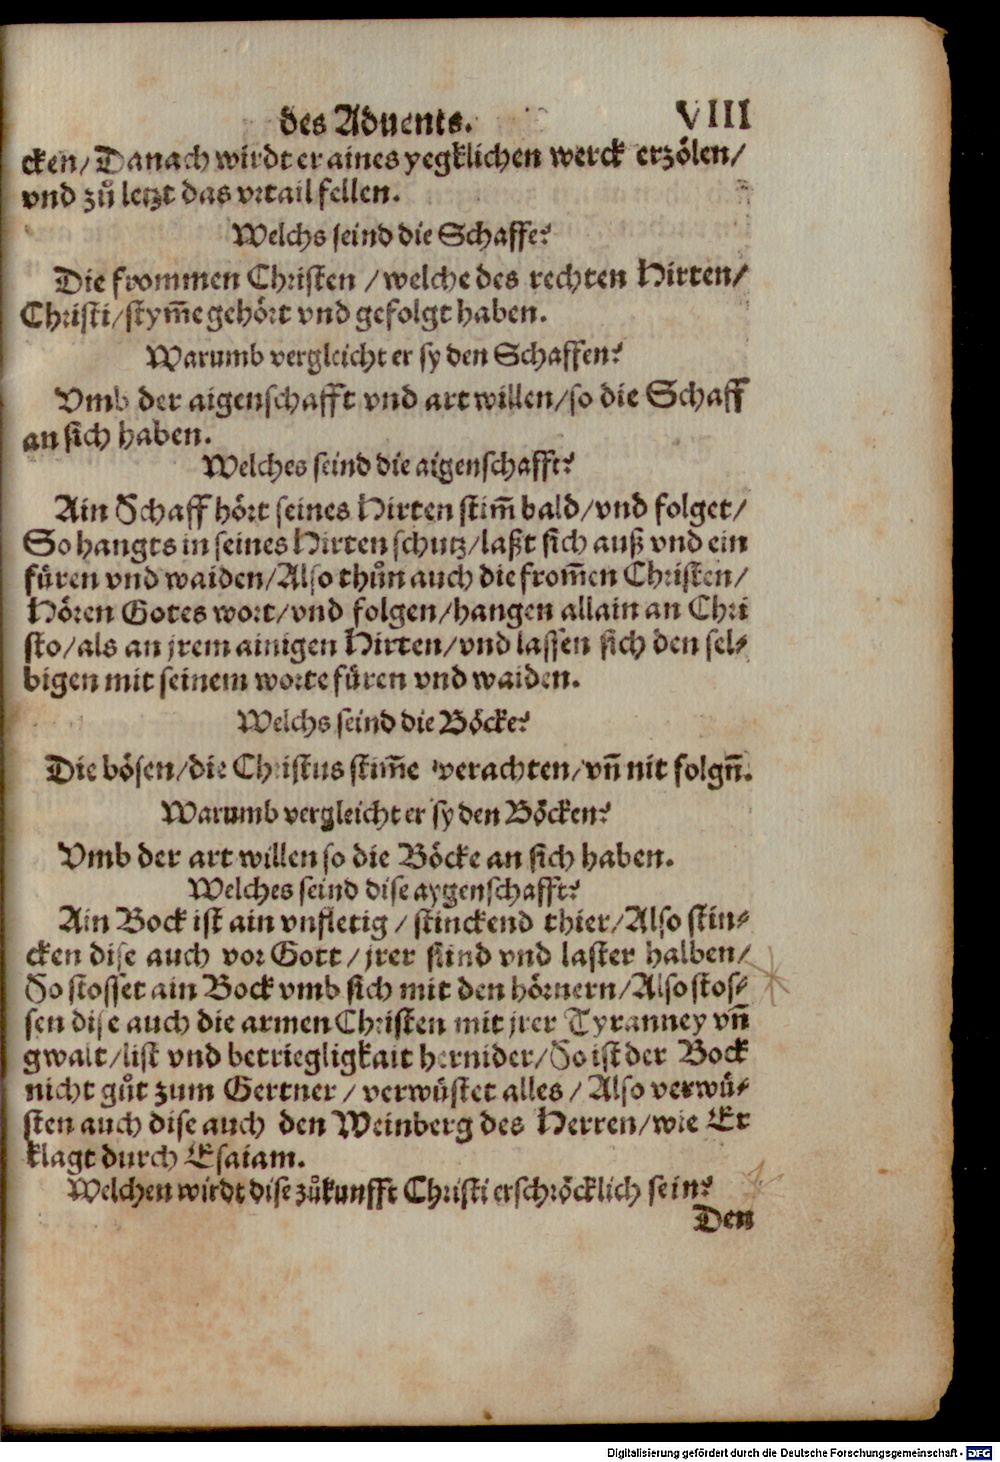 des Aduents. VIII
cken/ Danach wirdt er aines yegklichen werck erzölen/
vnd zů letzt das vrtail fellen.
Welchs seind die Schaffe?
Die frommen Christen /welche des rechten Hirten/
Christi/ stym̃e gehört vnd gefolgt haben.
Warumb vergleicht er sy den Schaffen?
Vmb der aigenschafft vnd art willen/so die Schaff
an sich haben.
Welches seind die aigenschafft?
Ain Schaff hört seines Hirten stim̃ bald/vnd folget/
So hangts in seines Hirten schutz/laßt sich auß vnd ein
füren vnd waiden/Also thůn auch die from̃en Christen/
Hören Gotes wort/vnd folgen/hangen allain an Chri
sto/als an jrem ainigen Hirten/vnd lassen sich den sel⸗
bigen mit seinem worte füren vnd waiden.
Welchs seind die Böcke?
Die bösen/die Christus stim̃e verachten/vn̄ nit folgn̄.
Warumb vergleicht er sy den Böcken?
Vmb der art willen so die Böcke an sich haben.
Welches seind dise aygenschafft?
Ain Bock ist ain vnfletig / stinckend thier/Also stin⸗
cken dise auch vor Gott / jrer sünd vnd laster halben/
So stosset ain Bock vmb sich mit den hörnern/Also stos⸗
sen dise auch die armen Christen mit jrer Tyranney vn̄
gwalt/list vnd betriegligkait hernider/So ist der Bock
nicht gůt zum Gertner / verwüstet alles / Also verwü⸗
sten auch dise auch den Weinberg des Herren/wie Er
klagt durch Esaiam.
Welchen wirdt dise zůkunfft Christi erschröcklich sein?
Den
Digitalisierung gefördert durch die Deutsche Forschungsgemeinschaft - DFG